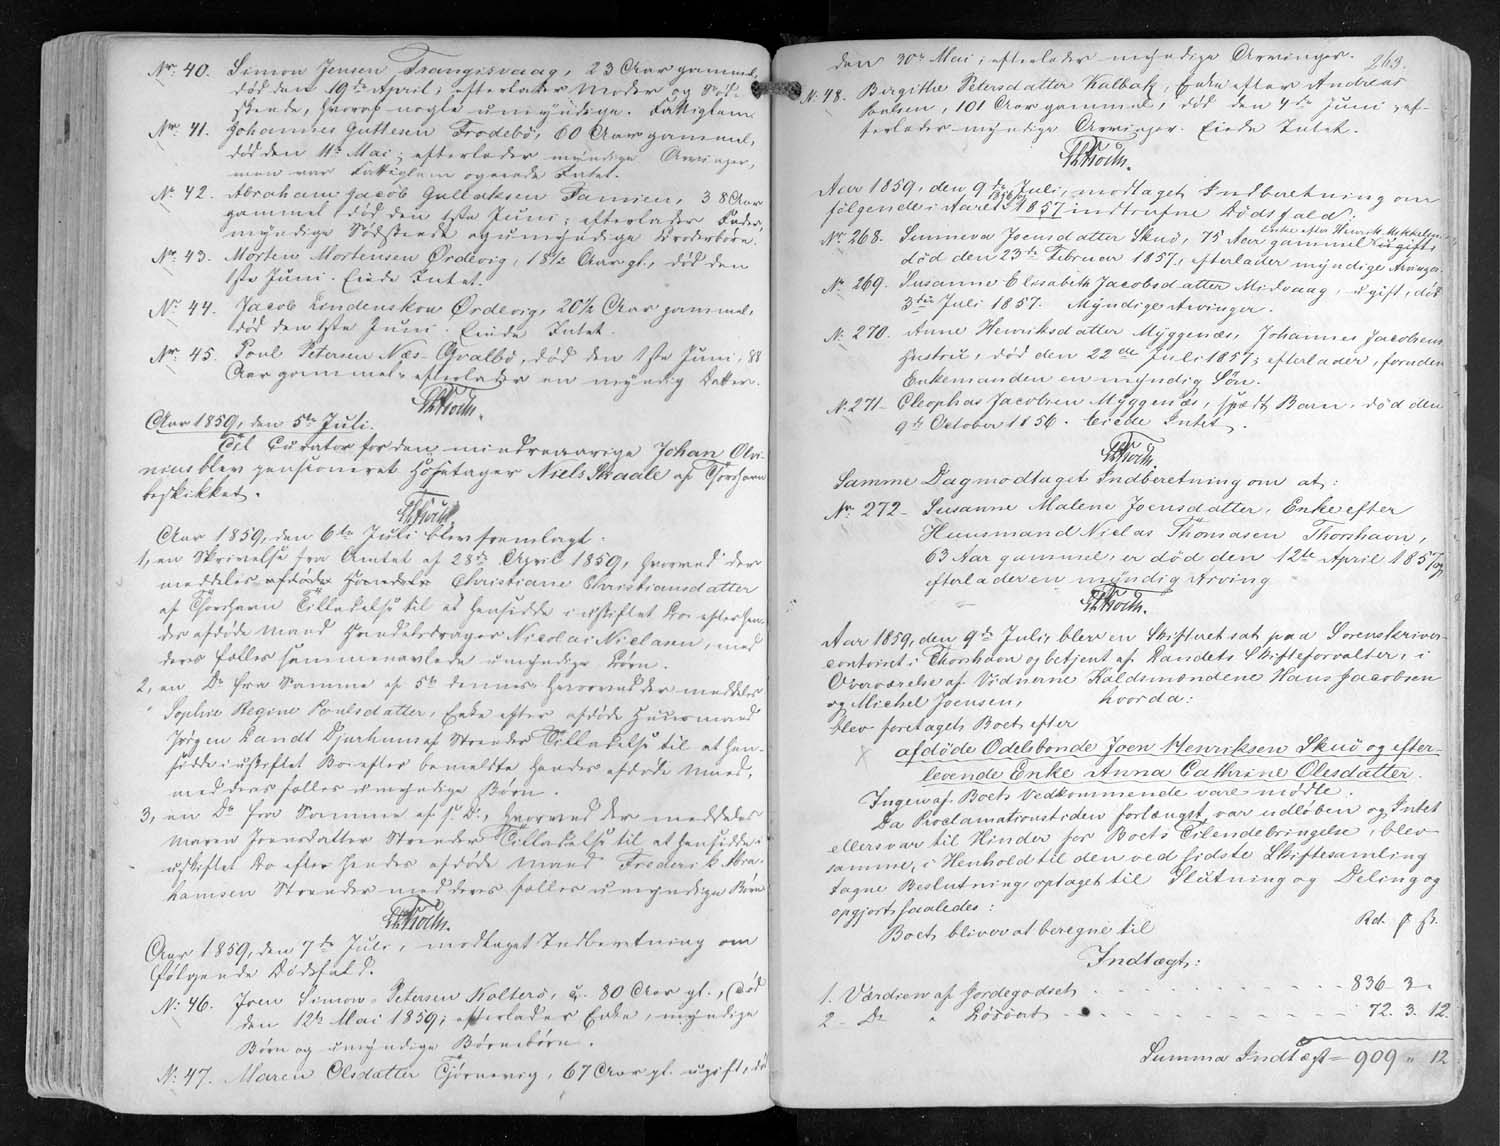 No: 40. Simon Jensen Frangisvaag, 23 Aar gammel,
død den 19de April; efterlader Moder og Sød-
skende, hvoraf nogle umyndige. Fattiglem
No: 41. Johannes Guttesen Frodebø, 60 Aar gammel,
død den 11te Mai; efterlader myndige Arvinger,
men var Fattiglem og eiede Intet.
No: 42. Abraham Jacob Gullaksen Famien, 38 Aar
gammel død den 1ste Juni; efterlader Fader,
myndige Sødskende og umyndige Broderbørn.
No: 43. Morten Mortensen Ørdevig, 18½ Aar gl., død den
1ste Juni. Eiede Intet.
No: 44. Jacob Lindenskou Ørdevig, 20½ Aar gammel,
død den 1ste Juni. Eiede Intet.
No: 45. Poul Petersen Næs-Qvalbø, død den 1ste Juni, 88
Aar gammel efterlader en myndig Datter.
Aar 1859, den 5te Juli.
Til Curator for den mindreaarige Johan Olri-
nious blev pensioneret Høstager Niels Skaale af Thorshavn
beskikket.
Aar 1859, den 6te Juli blev fremlagt:
1, en Skrivelse fra Amtet af 28de April 1859, hvorved der
meddeles afdøde Christiane Christiansdatter
af Thorshavn Tilladelse til at hensidde i uskiftet Bo efter hen-
des afdøde Mand Handelsdrager Nicolai Nielsen, med
deres fælles sammenavlede umyndige Børn.
2, en Do fra Samme af 5te dennes hvorved der meddeles
Sophie Regine Poulsdatter, Enke efter afdøde Huusmand
Jørgen Landt Djurhuus af Strender Tilladelse til at hen-
sidde i uskiftet Bo efter bemeldte hendes afdøde Mand,
med deres fælles umyndige Børn.
3, en Do fra Samme af s. D., hvorved der meddeles
Maren Joensdatter Strender Tilladelse til at hensidde i
uskiftet Bo efter hendes afdøde Mand Frederik Abra-
hamsen Strender med deres fælles umyndige Børn
Aar 1859, den 7de Juli, modtaget Indberetning om
følgende Dødsfald.
No: 46. Joen Simon Petersen Kolterø, 80 Aar gl., død
den 12te Mai 1859; efterlader Enke, myndige
Børn og umyndige Børnebørn.
No: 47. Maren Olsdatter Tjørnevig, 67 Aar gl. ugift, død
den 30te Mai; efterlader myndige Arvinger.
263.
No: 48. Birgithe Petersdatter Kalbak, Enke efter Andreas
Poulsen, 101 Aar gammel, død den 4de Juni, ef-
terlader myndige Arvinger. Eiede Intet.
Aar 1859, den 9de Juli, modtaget Indberetning om
følgende i Aaret 1856/1857 indtrufne Dødsfald:
No: 268. Sunneva Joensdatter Skuø, 75 Aar gammel ugift
Enke efter Henrik Mikkelsen
død den 23de Februar 1857, efterlader myndige Arvinger.
No: 269. Susanne Elisabeth Jacobsdatter Midvaag, ugift, død
3die Juli 1857. Myndige Arvinger.
No: 270. Anne Henriksdatter Myggenæs, Johannes Jacobsens
Hustru, død den 22de Juli 1857; efterlader, foruden
Enkemanden en myndig Søn.
No: 271 - Cleophas Jacobsen Myggenæs, spædt Barn, død den
9de October 1856. Eiede Intet.
Samme Dag modtaget Indberetning om at:
No: 272 - Susanne Malene Joensdatter, Enke efter
Huusmand Niclas Thomasen Thorshavn,
63 Aar gammel, er død den 12te April 1857, og
efterlader en myndig Arving
Aar 1859, den 9de Juli, blev en Skifteret sat paa Sorenskriver-
contoiret i Thorshavn og betjent af Landets Skifteforvalter, i
Overværelse af Vidnerne Kaldsmændene Hans Jacobsen
og Michel Joensen, hvorda:
blev foretaget Boet efter
afdøde Odelsbonde Joen Henriksen Skuø og efter-
levende Enke Anna Cathrine Olesdatter.
Ingen af Boets Vedkommende vare mødte.
Da Proclamationstiden forlængst var udløben og Intet
ellers var til Hinder for Boets Tilendebringelse, blev
samme, i Henhold til den ved sidste Skiftesamling
tagne Beslutning, optaget til Slutning og Deling og
opgjort saaledes:
Boet bliver at beregne til
Rd. ℳ ß.
Indtægt:
1. Værdien af Jordegodset - - - - - 836 . 3 .
2 - Do " Løsøret - - - - - 72. 3. 12.
Summa Indtægt = 909 " 12